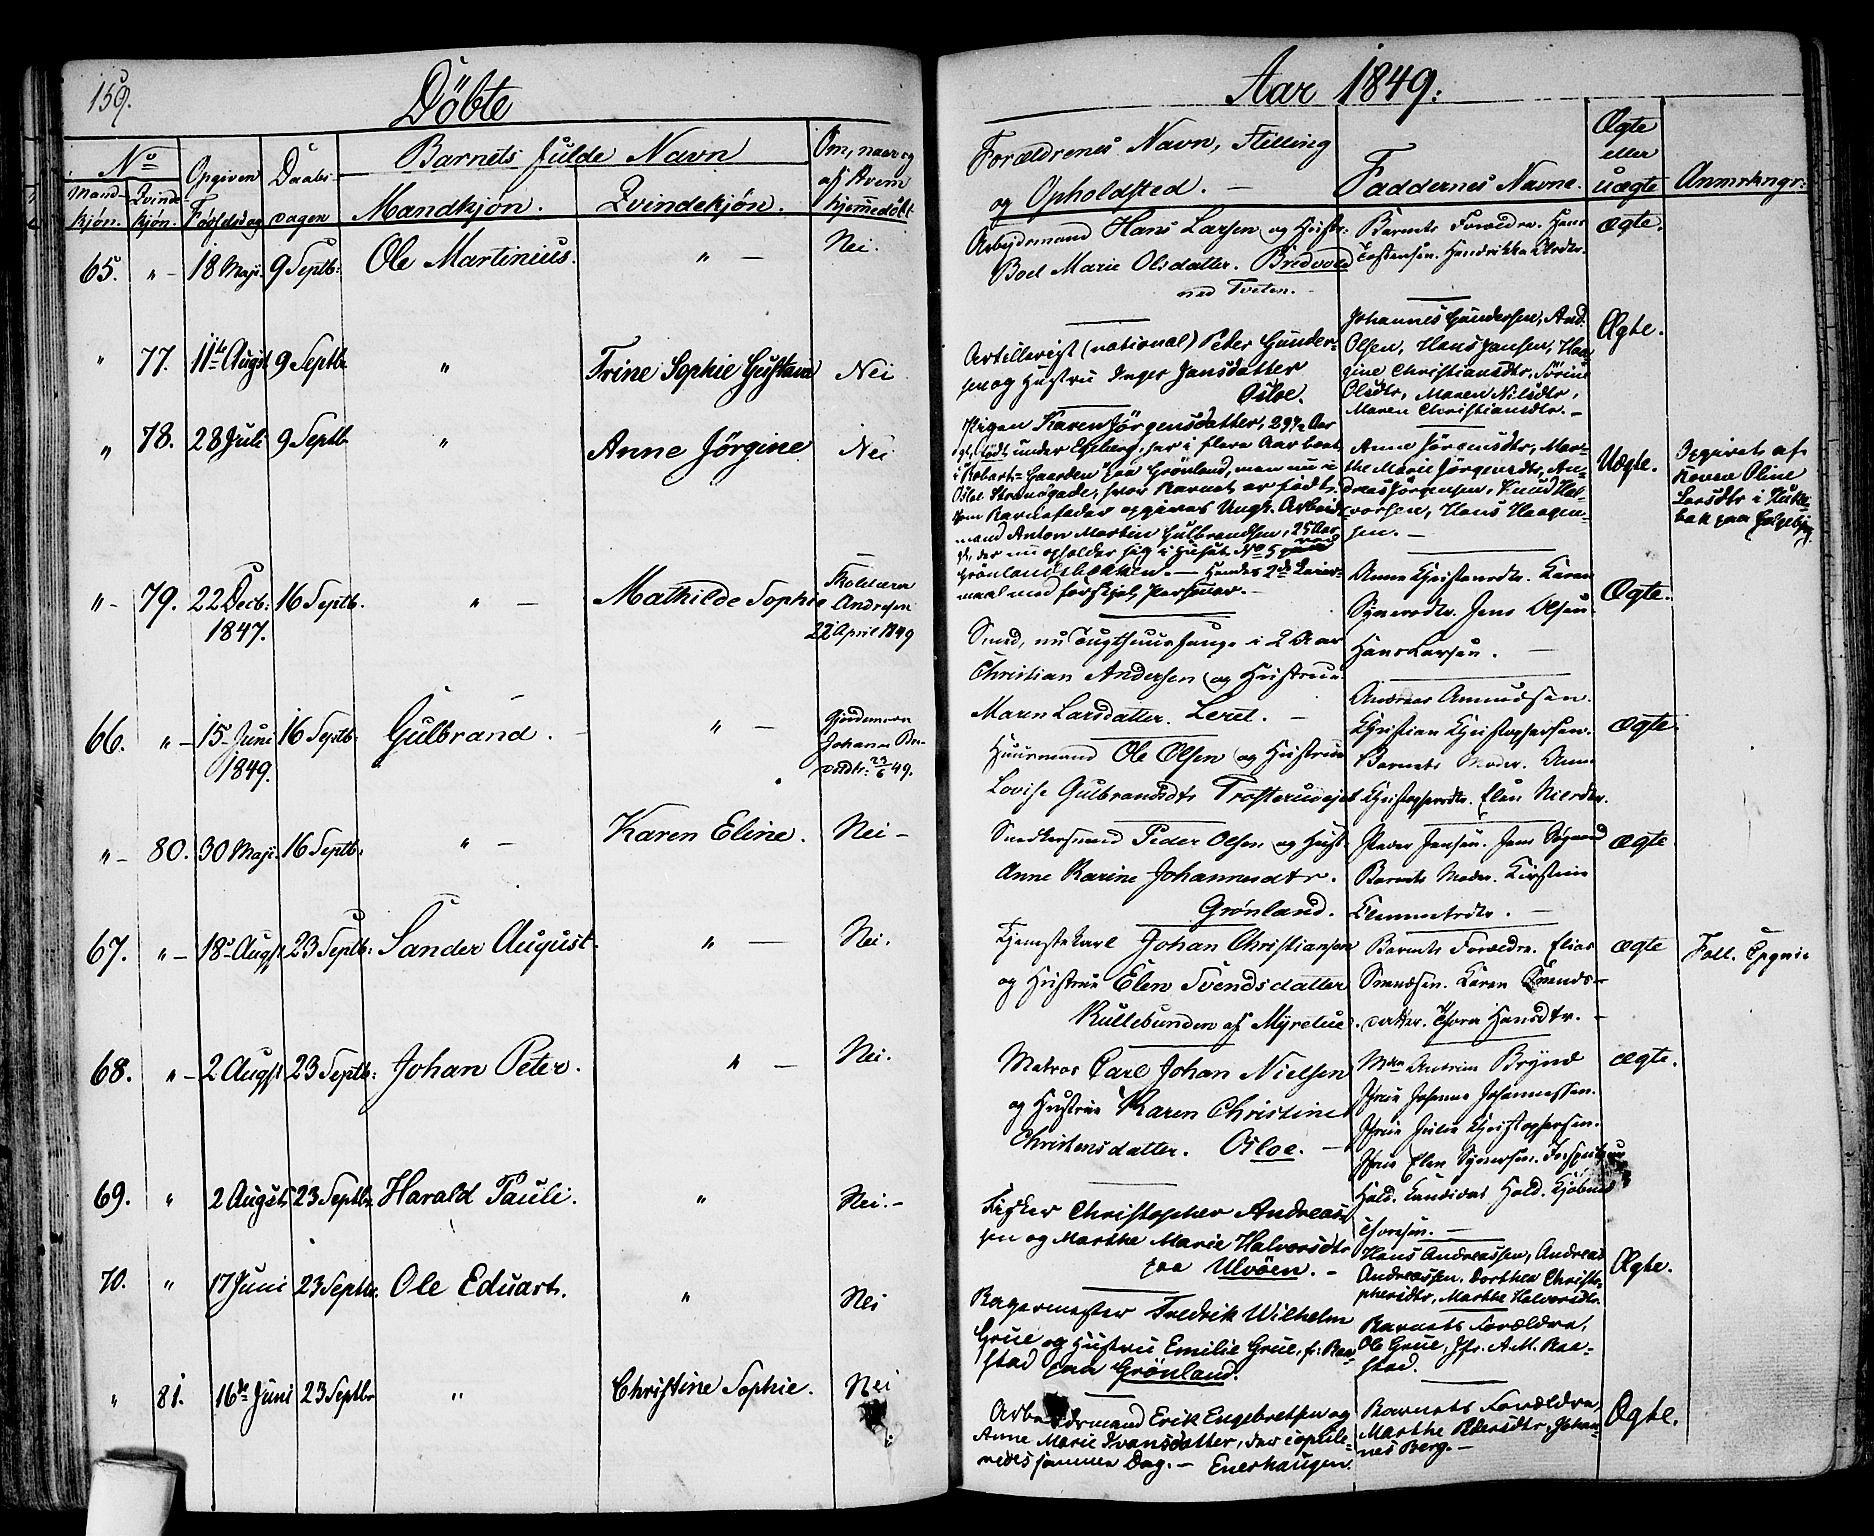 159.
Döbte
Aar 1849.
No
Mandkjøn.
Qvindekjøn.
Opgiven Födselsdag
Daabsdagen
Barnets fulde Navn
Mandkjön.
Qvindekjön.
Om, naar og af hvem hjemmedöbt
Forældrenes Navn, Stilling
og Opholdsted.
Faddernes Navne.
Ægte eller uægte
Anmrkngr:
65. " 18 Maji 9 Septb: Ole Martinius. " Nei.
Arbejdsmand Hans Larsen og Hustr:
Boel Marie Olsdatter. Bredvold
ved Tveten.
Barnets Forældre. Hans
Tostensen. Hendrikke
ægte.
" 77. 11te Augst 9 Septbr " Trine Sophie Gustava Nei
Artillerist (national) Peter Gunder-
sen og Hustru Inger Jansdatter
Osloe.
Johannes Gundersen, And.
Olsen, Hans Jansen, Haa-
gine Christiansdtr, Sörine
Olsdtr, Maren Nilsdtr,
Maren Christiansdtr.
Ægte.
" 78. 28 Juli 9 Septb " Anne Jörgine Nei
Pigen Karen Jörgensdatter, 29½ Aar
gl., födt under Egeberg, har i flere Aar boet
i Robarts-Gaarden paa Grönland, men nu i
Osloe Strandgade, hvor Barnet er födt.
Som Barnefader opgives Ungk. Arbeids-
mand Anton Martin Gulbrandsen, 25 Aar
gl., der nu opholder sig i Huset No 5 ved
Grönlandsbakken. Hendes 2det Leier-
maal med forskjel. Personer.
Anne Jörgensdtr, Mar-
the Marie Jörgensdtr, An-
dreas Jörgensen, Knud Hal-
vorsen, Hans Haagen-
sen.
Uægte.
Opgivet af
Karen Oline
Larsdtr i
bak paa
" 79. 22 Decb: 1847. 16 Septb. " Mathilde Sophie
Skolelærer
Andresen
22 April 1849
Smed, nu Tugthuusfange i 2 Aar
Christian Andersen og Hustrue
Maren Larsdatter. Leret.
Anne Christensdtr. Karen
Syversdtr. Jens Olsen
Hans Larsen.
Ægte.
66. " 15 Juni 1849. 16 Septb. Gulbrand. "
Gjordemoer
Johanne
23/6 49.
Huusmand Ole Olsen og Hustrue
Lovise Gulbrandsdtr Trosterudejet
Andreas Amundsen.
Christian Christophersen.
Barnets Moder. Anne
Christophersdtr. Elen Nilsdtr.
ægte.
" 80. 30 Maji 16 Septb: " Karen Eline. Nei
Snedkersvend Peder Olsen og Hustr.
Anne Karine Johannesdtr.
Grönland.
Peder Jensen. Jens
Barnets Moder. Kirstine
Clemmetsdtr.
ægte
67. " 18 Augst 23 Septb: Sander August. " Nei.
Tjenestekarl Johan Christiansen
og Hustrue Elen Svendsdatter
Kullebunden af Myretue.
Barnets Forældre. Elias
Svendsen. Karen Svends-
datter. Thora Hansdtr.
ægte
Foll. Sogn
68. " 2 Augst 23 Septb: Johan Peter. " Nei.
Matros Carl Johan Nielsen
og Hustrue Karen Christine
Christensdatter. Osloe.
Antrine Brynd
Johanne Johannessen.
Julie Christophersen.
Elen Syversen.
Hald. Kandidat Hald.
Thoresen.
ægte.
69. " 2 Augst 23 Septbr Harald Pauli. " Nei.
Fisker Christopher Andreas-
sen og Marthe Marie Halvorsdtr
paa Ulvöen.
Hans Andreassen, Andreas
Andreassen, Dorthea Christo-
phersdtr, Marthe Halvorsdtr.
Ægte.
70. " 17 Juni 23 Septbr. Ole Eduart. " Nei
Bagermester Fredrik Wilhelm
Grue og Hustru Emilie Grue, f: Raa-
stad paa Grönland.
Barnets Forældre,
Ole Grue, Jfr. A.M. Raa-
stad.
" 81. 16de Juni 23 Septbr " Christine Sophie. Nei
Arbeidsmand Erik Engebretsen og
Anne Marie Ivansdatter, der copule-
redes samme Dag. Enerhaugen.
Barnets Forældre,
Marthe Pedersdtr, Johan-
nes Berg.
Ægte.